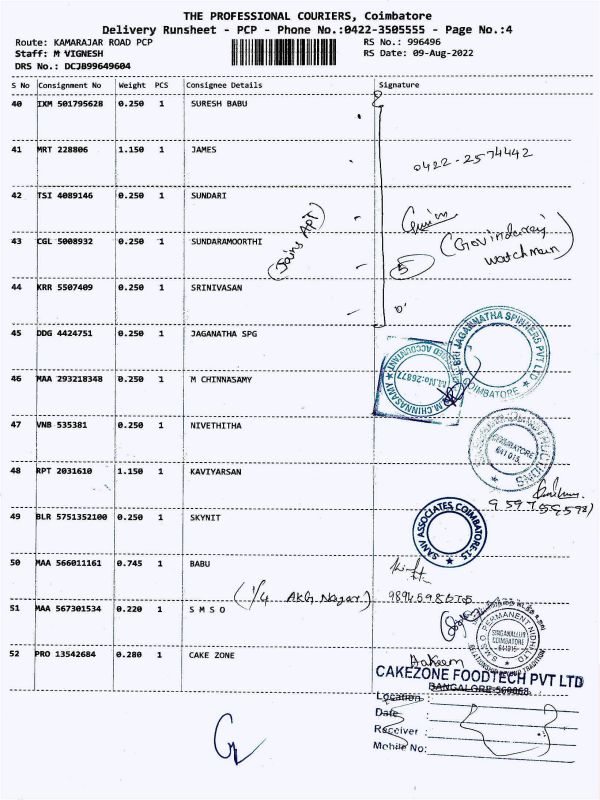 THE PROFESSIONAL COURIERS, Coimbatore
Delivery Runsheet - PCP - Phone No.:0422-3505555 - Page No.:4
Route: KAMARAJAR ROAD PCP RS No.: 996496
Staff: M VIGNESH RS Date: 09-Aug-2022
DRS No.: DCJ899649604
S No Consignment No Weight PCS Consignee Details Signature
40 IXM 501795628 0.250 1 SURESH BABU
41 MRT 228806 1.150 1 JAMES
0422-2574442
42 TSI 4089146 0.250 1 SUNDARI
(Jains Apt)
(Govindaraj
watchman)
43 CGL 5008932 0.250 1 SUNDARAMOORTHI
5
44 KRR 5507409 0.250 1 SRINIVASAN
45 DDG 4424751 0.250 1 JAGANATHA SPG
SRI JAGANNATHA SPINNERS PVT LTD
COIMBATORE
46 MAA 293218348 0.250 1 M CHINNASAMY
M.CHINNASAMY
M.No:26877
ACCOUNTANT
47 VNB 535381 0.250 1 NIVETHITHA
COIMBATORE
641 015
48 RPT 2031610 1.150 1 KAVIYARSAN
49 BLR 5751352100 0.250 1 SKYNIT
SANV ASSOCIATES COIMBATORE-15
50 MAA 566011161 0.745 1 BABU
(1/4 AKG Nagar)
51 MAA 567301534 0.220 1 S M S O
S.M.S.O. PERMANENT NIDHI LTD
SINGANALLUR
COIMBATORE
52 PRO 13542684 0.280 1 CAKE ZONE
Hakeem
CAKEZONE FOODTECH PVT LTD
BANGALORE-560068
Location :
Date :
Receiver :
Mobile No: